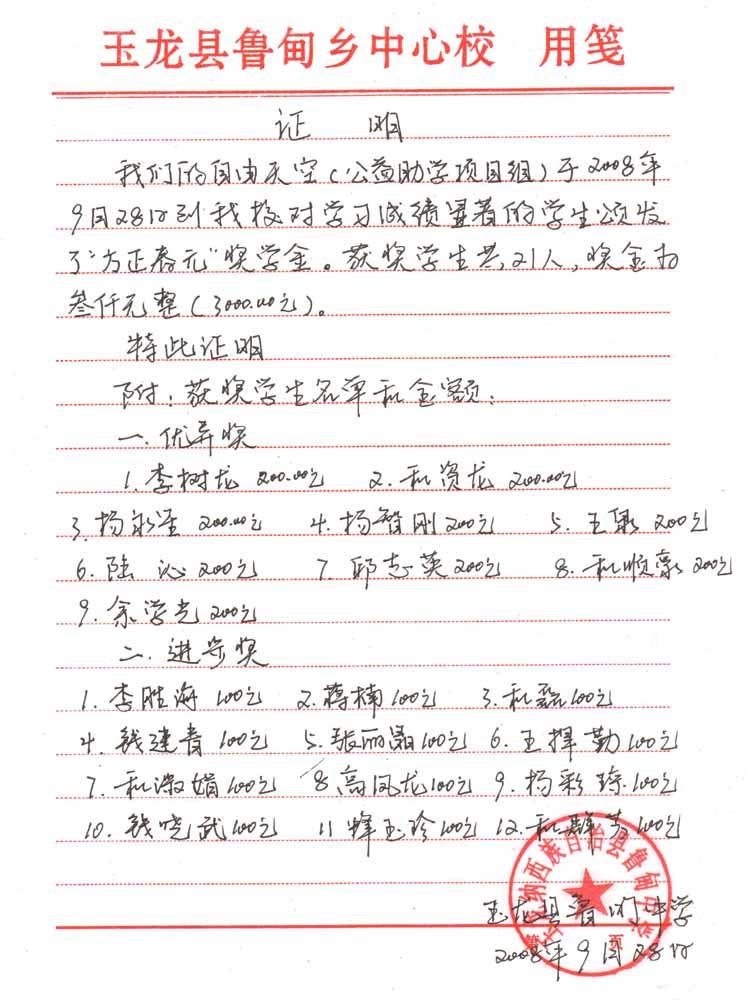 玉龙县鲁甸乡中心校 用笺
证 明
我们的自由天空(公益助学项目组)于2008年
9月28日到我校对学习成绩显著的学生颁发
了"方正春元"奖学金。获奖学生共21人,奖金为
叁仟元整(3000.00元)。
特此证明
附:获奖学生名单和金额:
一.优异奖
1.李树龙 200.00元 2.和资龙 200.00元
3.杨永圣 200.00元 4.杨智刚 200元 5.王泉 200元
6.陆沁 200元 7.邱志英 200元 8.和顺豪 200元
9.余学光 200元
二.进步奖
1.李胜海 100元 2.蒋楠 100元 3.和磊 100元
4.钱建青 100元 5.张丽晶 100元 6.王择勤 100元
7.和淑娟 100元 8.高凤龙 100元 9.杨彩琼 100元
10.钱晓武 100元 11蜂玉珍 100元 12.和群芳 100元
纳西族自治县鲁甸
玉龙县鲁甸中学
第 页
2008年9月28日